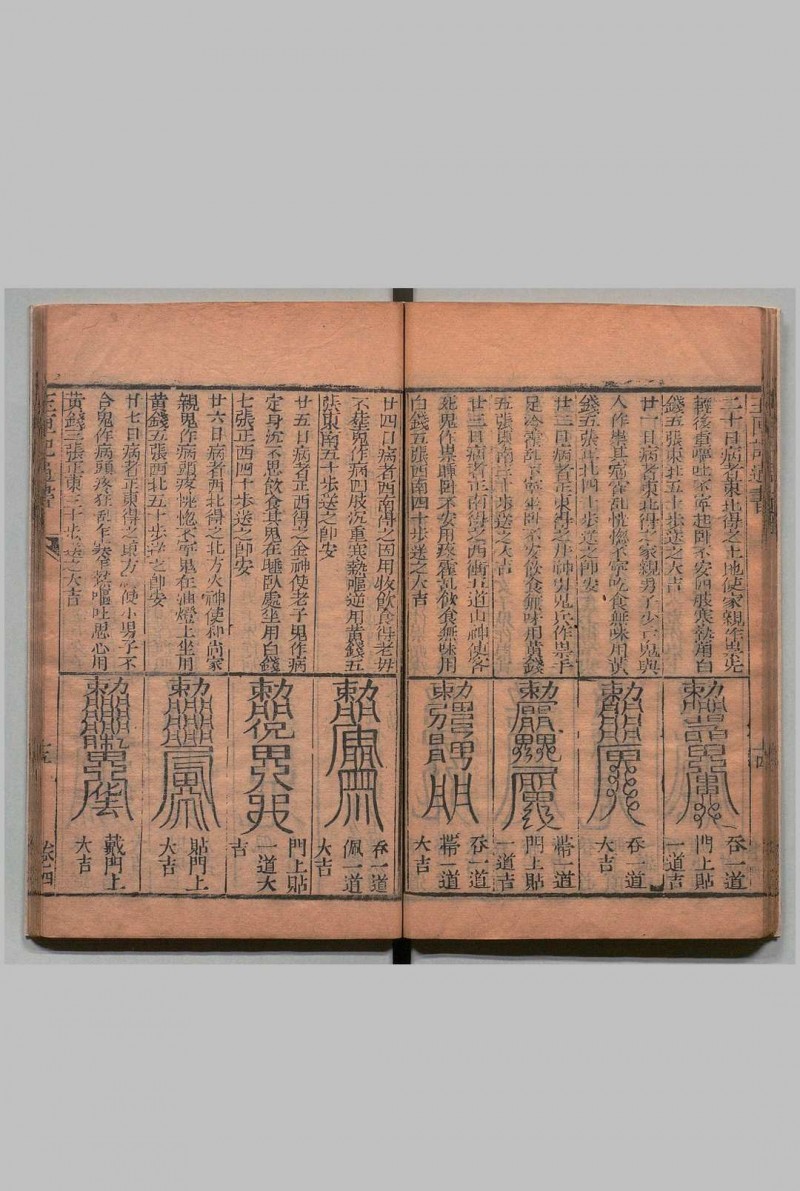 二十日病者東北得之土地使家親作祟先
輕後重嘔吐不寧起臥不安四肢寒熱用白
錢五張東北五十步送之大吉
吞一道
門上貼
一道吉
廿一日病者東北得之家親男子少亡鬼與
人作祟其冤害乱恍惚不寧吃食無味用黃
錢五張正北四十步送之即安
吞一道
大吉
廿二日病者正東得之井神男鬼兵作祟手
足冷霍乱不寧坐臥不安飲食無味用黃錢
五張東南三十步送之大吉
帶一道
門上貼
一道吉
廿三日病者正南得之西衝五道山神使客
死鬼作祟睡臥不安用痰霍乱飲食無味用
白錢五張西南四十步送之大吉
吞一道
帶一道
大吉
廿四日病者西南得之因用收飲食得老母
不葬鬼作病四肢沉重寒熱嘔逆用黃錢五
張東南五十步送之即安
吞一道
佩一道
大吉
廿五日病者正西得之金神使老子鬼作病
定身沉不思飲食其鬼在睡臥處坐用白錢
七張正西四十步送之即安
門上貼
一道大
吉
廿六日病者西北得之北方火神使和尚家
親鬼作病頭疼恍惚不寧鬼在油燈上坐用
黃錢五張西北五十步送之即安
貼門上
大吉
廿七日病者正東得之東方 使小男子不
合鬼作病頭疼狂乱乍寒乍熱嘔吐思心用
黃錢三張正東三十步送之大吉
戴門上
大吉
卷之四